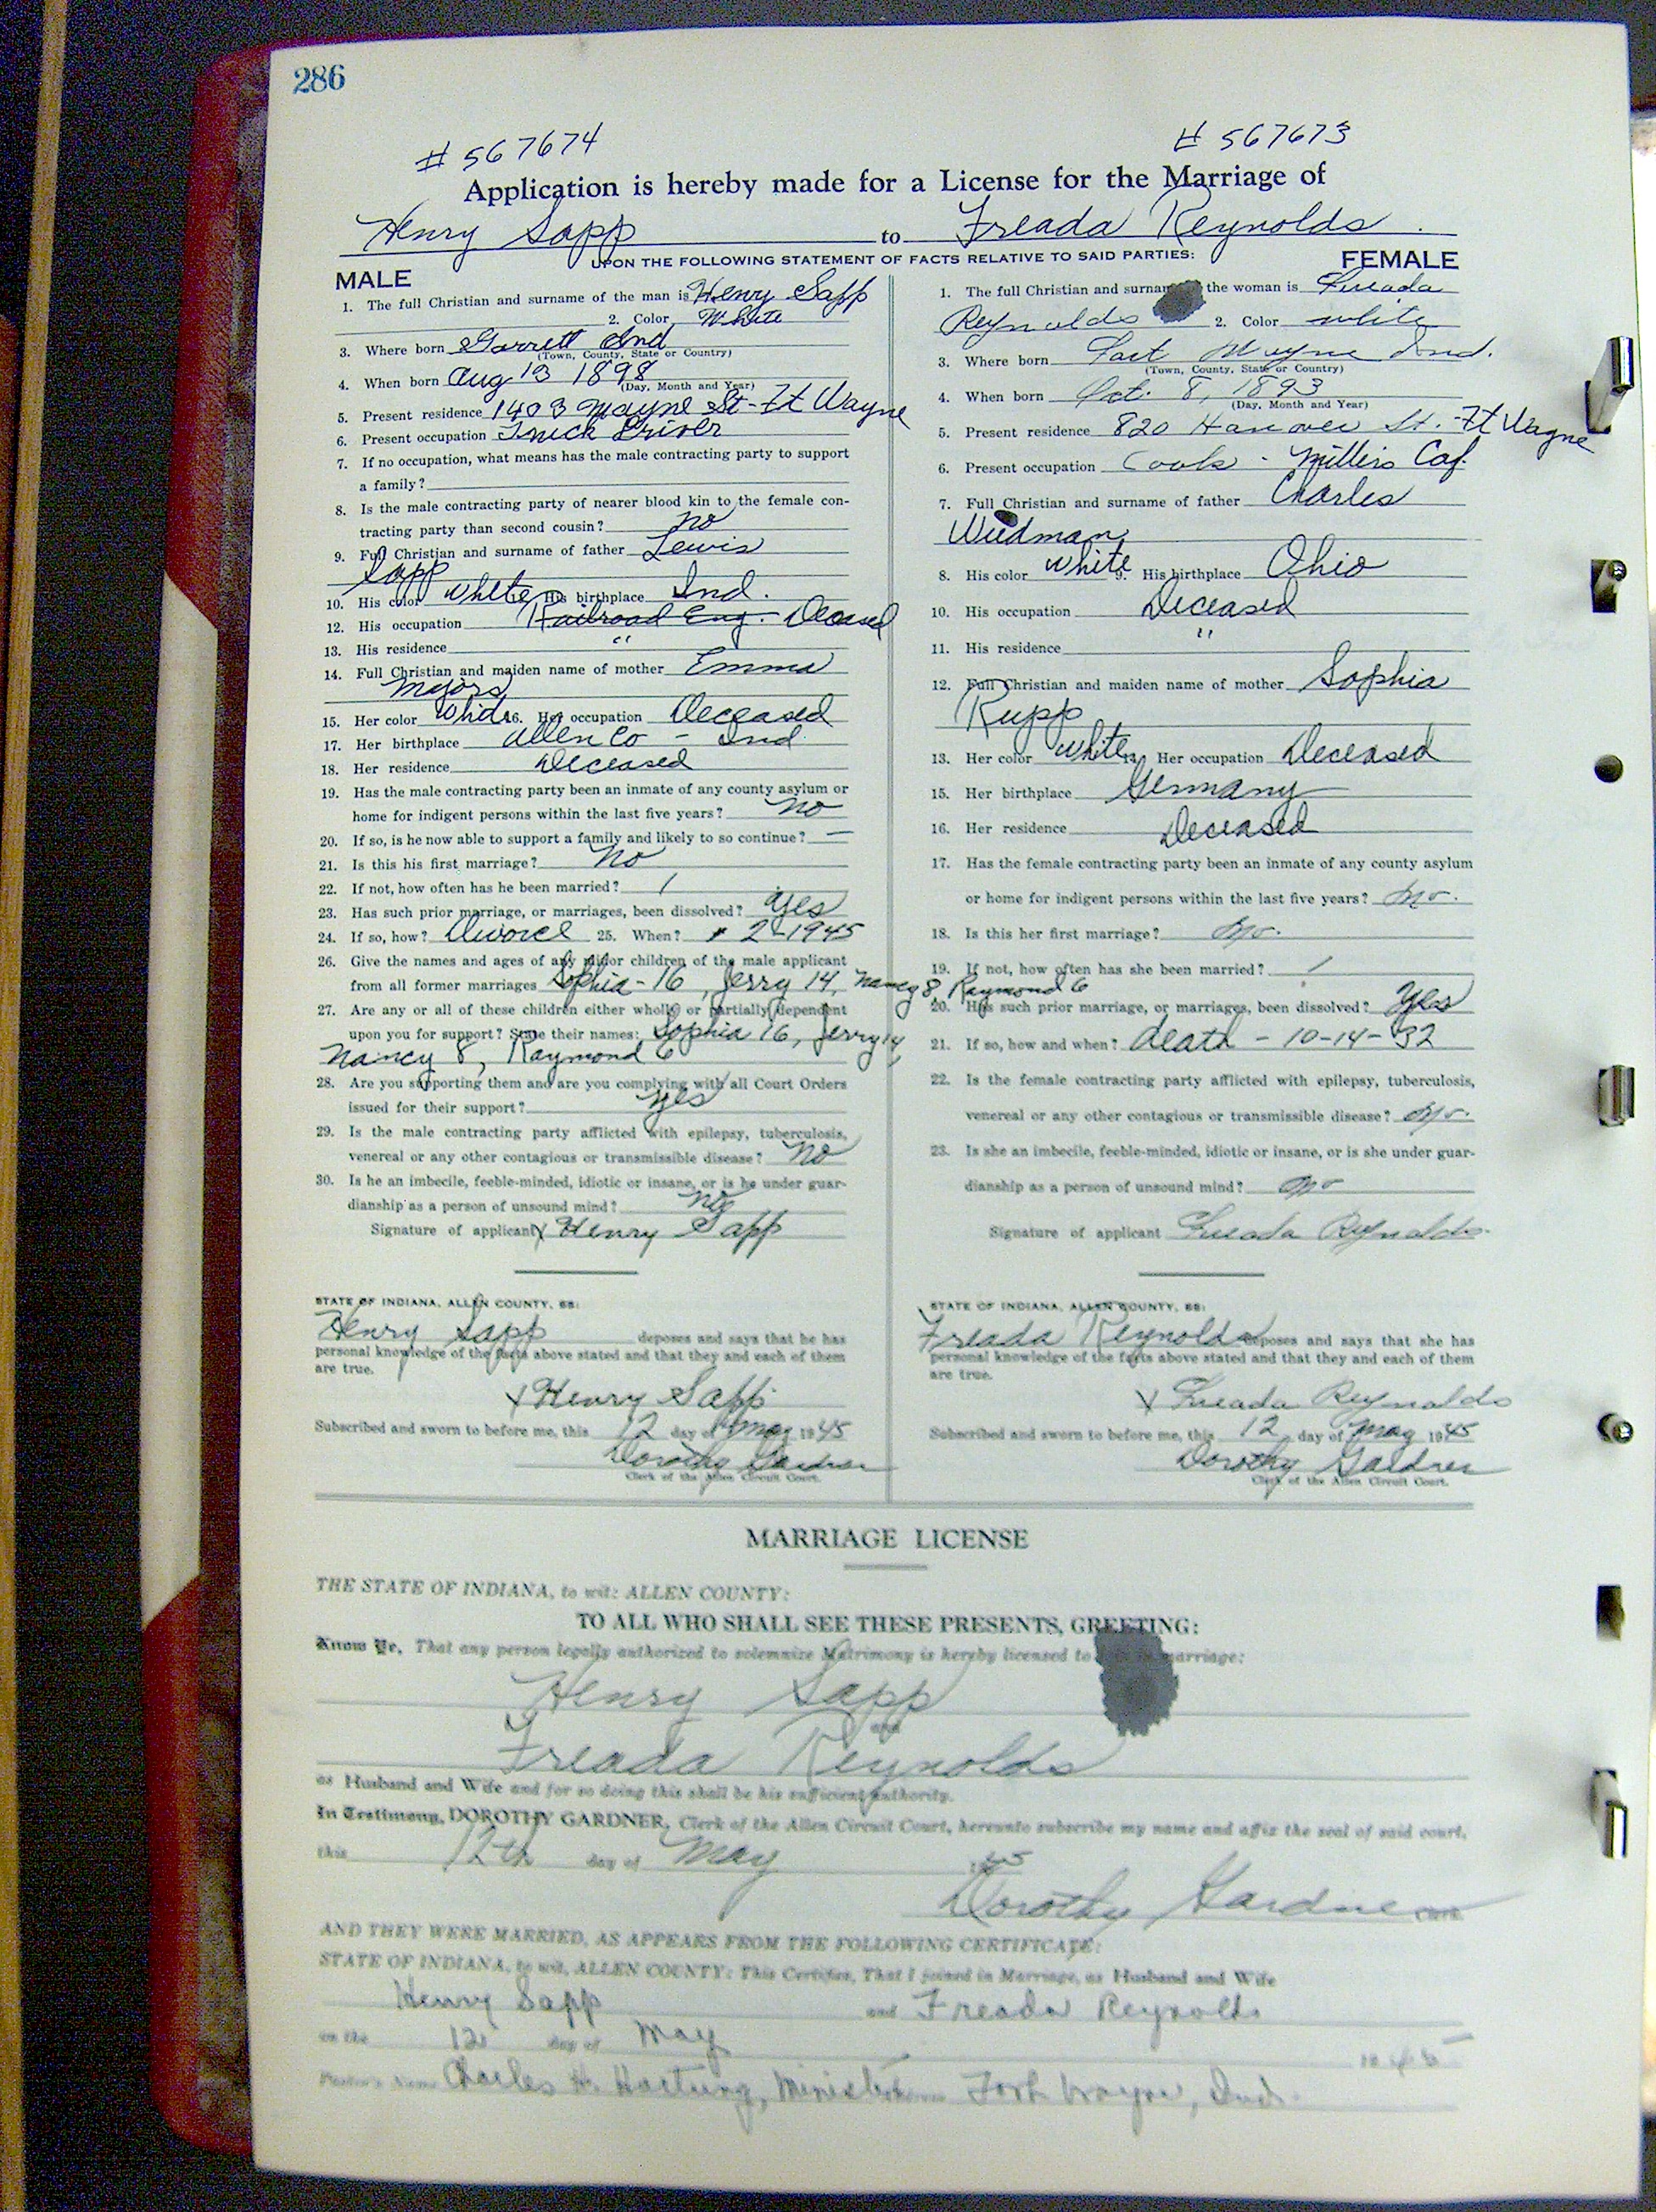 286
# 567674 # 567673
Application is hereby made for a License for the Marriage of
Henry Sapp to Freada Reynolds
UPON THE FOLLOWING STATEMENT OF FACTS RELATIVE TO SAID PARTIES:
MALE
1. The full Christian and surname of the man is Henry Sapp
2. Color White
3. Where born Garrett Ind
(Town, County, State or Country)
4. When born Aug 13 1898
(Day, Month and Year)
5. Present residence 1403 Wayne St - Ft Wayne
6. Present occupation Truck Driver
7. If no occupation, what means has the male contracting party to support
a family?
8. Is the male contracting party of nearer blood kin to the female con-
tracting party than second cousin? no
9. Full Christian and surname of father Lewis
Sapp
10. His color white His birthplace Ind.
12. His occupation Railroad Eng. Deceased
13. His residence "
14. Full Christian and maiden name of mother Emma
Majors
15. Her color White 16. Her occupation Deceased
17. Her birthplace Allen Co - Ind
18. Her residence Deceased
19. Has the male contracting party been an inmate of any county asylum or
home for indigent persons within the last five years? no
20. If so, is he now able to support a family and likely to so continue? —
21. Is this his first marriage? No
22. If not, how often has he been married? 1
23. Has such prior marriage, or marriages, been dissolved? yes
24. If so, how? Divorce 25. When? 2-1945
26. Give the names and ages of any minor children of the male applicant
from all former marriages Sophia - 16, Jerry 14, Nancy 8, Raymond 6
27. Are any or all of these children either wholly or partially dependent
upon you for support? State their names: Sophia 16, Jerry 14
Nancy 8, Raymond 6
28. Are you supporting them and are you complying with all Court Orders
issued for their support? yes
29. Is the male contracting party afflicted with epilepsy, tuberculosis,
venereal or any other contagious or transmissible disease? no
30. Is he an imbecile, feeble-minded, idiotic or insane, or is he under guar-
dianship as a person of unsound mind? no
Signature of applicant X Henry Sapp
STATE OF INDIANA, ALLEN COUNTY, SS:
Henry Sapp deposes and says that he has
personal knowledge of the facts above stated and that they and each of them
are true.
X Henry Sapp
Subscribed and sworn to before me, this 12 day of May 1945
Dorothy Gardner
Clerk of the Allen Circuit Court.
FEMALE
1. The full Christian and surname the woman is Freada
Reynolds 2. Color white
3. Where born Fort Wayne Ind.
(Town, County, State or Country)
4. When born Oct. 8, 1893
(Day, Month and Year)
5. Present residence 820 Hanover St. - Ft Wayne
6. Present occupation Cook - Millers Caf.
7. Full Christian and surname of father Charles
Wiedman
8. His color white 9. His birthplace Ohio
10. His occupation Deceased
11. His residence "
12. Full Christian and maiden name of mother Sophia
Rupp
13. Her color white Her occupation Deceased
15. Her birthplace Germany
16. Her residence Deceased
17. Has the female contracting party been an inmate of any county asylum
or home for indigent persons within the last five years? No.
18. Is this her first marriage? No.
19. If not, how often has she been married? 1
20. Has such prior marriage, or marriages, been dissolved? Yes
21. If so, how and when? death - 10-14-32
22. Is the female contracting party afflicted with epilepsy, tuberculosis,
venereal or any other contagious or transmissible disease? No.
23. Is she an imbecile, feeble-minded, idiotic or insane, or is she under guar-
dianship as a person of unsound mind? No
Signature of applicant Freada Reynolds.
STATE OF INDIANA, ALLEN COUNTY, SS:
Freada Reynolds deposes and says that she has
personal knowledge of the facts above stated and that they and each of them
are true.
X Freada Reynolds
Subscribed and sworn to before me, this 12 day of May 1945
Dorothy Gardner
Clerk of the Allen Circuit Court.
MARRIAGE LICENSE
THE STATE OF INDIANA, to wit: ALLEN COUNTY:
TO ALL WHO SHALL SEE THESE PRESENTS, GREETING:
Know Ye, That any person legally authorized to solemnize Matrimony is hereby licensed to marriage:
Henry Sapp
and
Freada Reynolds
as Husband and Wife and for so doing this shall be his sufficient authority.
In Testimony, DOROTHY GARDNER, Clerk of the Allen Circuit Court, hereunto subscribe my name and affix the seal of said court,
this 12th day of May 1945
Dorothy Gardner Clerk.
AND THEY WERE MARRIED, AS APPEARS FROM THE FOLLOWING CERTIFICATE:
STATE OF INDIANA, to wit, ALLEN COUNTY: This Certifies, That I joined in Marriage, as Husband and Wife
Henry Sapp and Freada Reynolds
on the 12 day of May 1945
Pastor's Name Charles H. Hartung, Minister Fort Wayne, Ind.